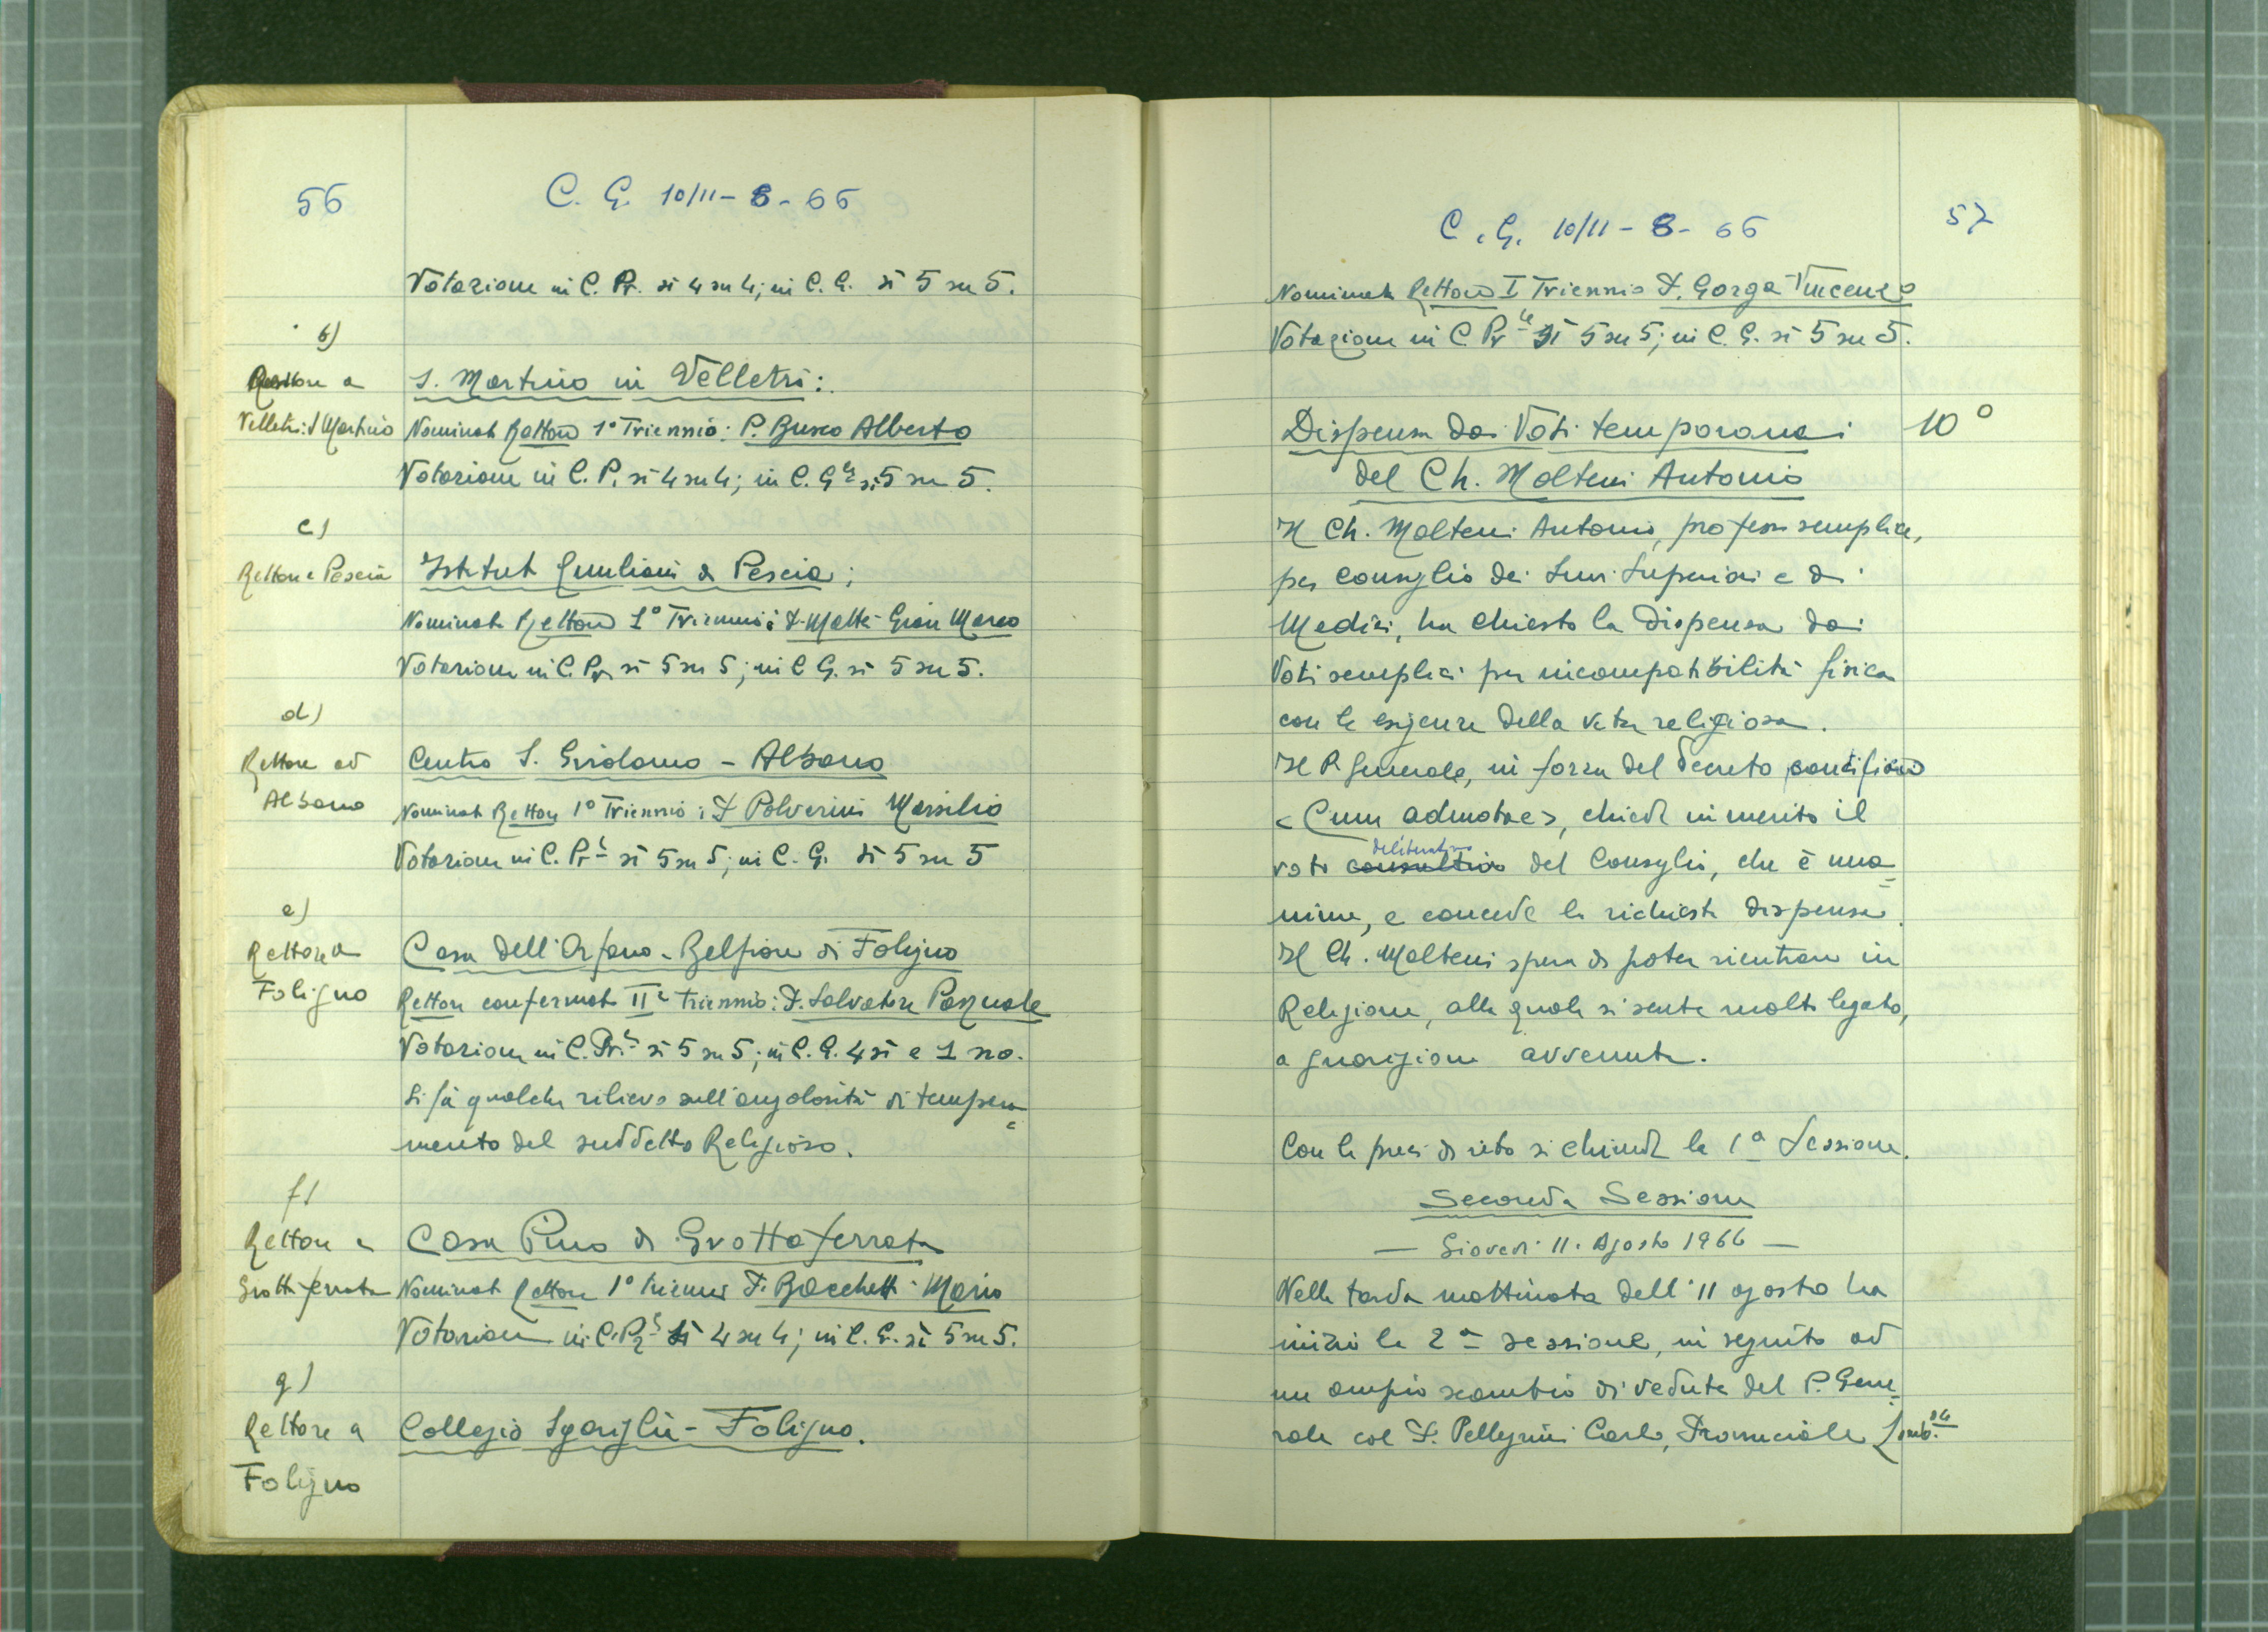 56
C. G. 10/11-8-66
Votazione in C. Pr. sì 4 su 4; in C. G. sì 5 su 5.
b)
Rettore a
Velletri: S Martino
S. Martino in Velletri:
Nominato Rettore 1° Triennio: P. Busco Alberto
Votazione in C. P. sì 4 su 4; in C. Gle si 5 su 5.
c)
Rettore Pescia
Istituto Giuliani di Pescia;
Nominato Rettore 1° Triennio: P. Mattè Gian Marco
Votazione in C. Pr. sì 5 su 5; in C G. sì 5 su 5.
d)
Rettore ad
Albano
Centro S. Girolamo - Albano
Nominato Rettore 1° Triennio: P Polverini Marsilio
Votazione in C. Prle sì 5 su 5; in C. G. sì 5 su 5
e)
Rettore a
Foligno
Casa dell'Orfano - Belfiore di Foligno
Rettore confermato II° triennio: P. Salvatore Pasquale
Votazione in C. Prle sì 5 su 5; in C. G. 4 sì e 1 no.
Si fà qualche rilievo sull'angolosità di tempera=
mento del suddetto Religioso.
f)
Rettore a
Grottaferrata
Casa Pino di Grottaferrata
Nominato Rettore 1° triennio P. Bacchetti Mario
Votazione in C. Prle sì 4 su 4; in C. G. sì 5 su 5.
g)
Rettore a
Foligno
Collegio Sgariglia - Foligno.
C. G. 10/11-8-66
57
Nominato Rettore I Triennio P. Gorga Vincenzo
Votazione in C Prle Sì 5 su 5; in C. G. sì 5 su 5.
Dispensa dai Voti temporanei
10°
del Ch. Molteni Antonio
Il Ch. Molteni Antonio, professo semplice,
per consiglio dei Suoi Superiori e di
Medici, ha chiesto la dispensa dai
Voti semplici per incompatibilità fisica
con le esigenze della vita religiosa.
Il P. Generale, in forza del Decreto pontificio
<Cum admotae>, chiede in merito il
deliberativo
voto consultivo del Consiglio, che è una=
nime, e concede la richiesta dispensa.
Il Ch. Molteni spera di poter rientrare in
Religione, alla quale si sente molto legato,
a guarigione avvenuta.
Con le preci di rito si chiude la 1a Sessione.
Seconda Sessione
- Giovedì 11. Agosto 1966 -
Nella tarda mattinata dell'11 agosto ha
inizio la 2a sessione, in seguito ad
un ampio scambio di vedute del P. Gene=
rale col P. Pellegrini Carlo, Provinciale Lomb.do